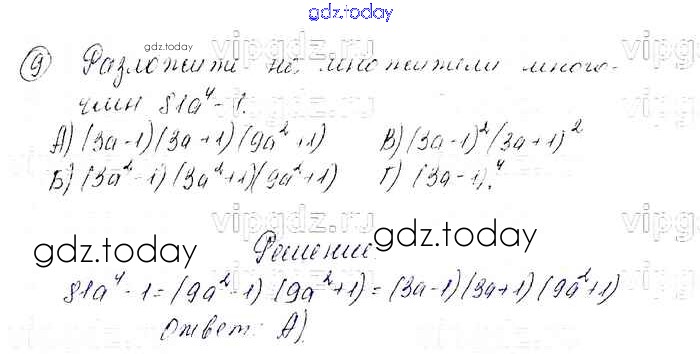 gdz.today
gdz.today
vipgdz.ru
9 Разложите на множители много-
член 81a⁴-1.
А) (3a-1)(3a+1)(9a²+1) В) (3a-1)²(3a+1)²
Б) (3a²-1)(3a²+1)(9a²+1) Г) (3a-1)⁴.
vipgdz.ru
gdz.today
gdz.today
Решение.
81a⁴-1=(9a²-1)(9a²+1)=(3a-1)(3a+1)(9a²+1)
Ответ: А).